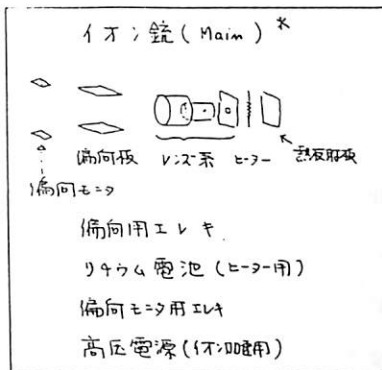 イオン銃(Main)*
偏向板 レンズ系 ヒーター 熱反射板
偏向モニタ
偏向用エレキ
リチウム電池(ヒーター用)
偏向モニタ用エレキ
高圧電源(イオン加速用)